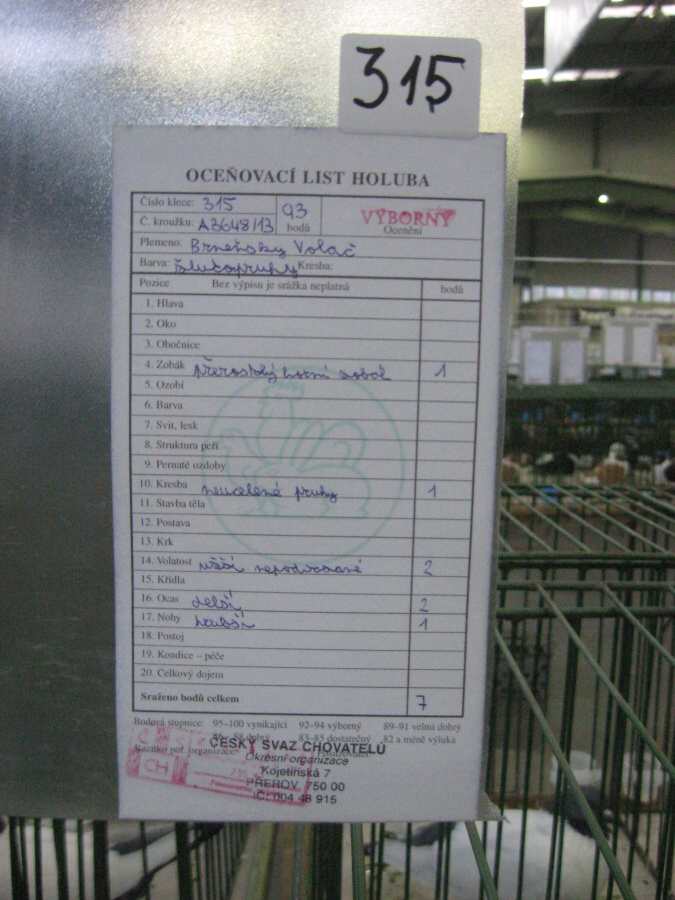 315
OCEŇOVACÍ LIST HOLUBA
Číslo klece: 315
93
bodů
VÝBORNÝ
Ocenění
Č. kroužku: A3648/13
Plemeno: Brněnský Voláč
Barva: žlutopruhý Kresba:
Pozice Bez výpisu je srážka neplatná bodů
1. Hlava
2. Oko
3. Obočnice
4. Zobák přerostlý horní zobák 1
5. Ozobí
6. Barva
7. Svit, lesk
8. Struktura peří
9. Pernaté ozdoby
10. Kresba neucelené pruhy 1
11. Stavba těla
12. Postava
13. Krk
14. Volatost užší 2
15. Křídla
16. Ocas delší 2
17. Nohy hrubší 1
18. Postoj
19. Kondice – péče
20. Celkový dojem
Sraženo bodů celkem 7
Bodová stupnice: 95–100 vynikající 92–94 výborný 89–91 velmi dobrý
dobrý 83–85 dostatečný 82 a méně výluka
Razítko poř. organizace:
ČESKÝ SVAZ CHOVATELŮ
Okresní organizace
Kojetínská 7
PŘEROV, 750 00
IČ: 004 48 915
CH